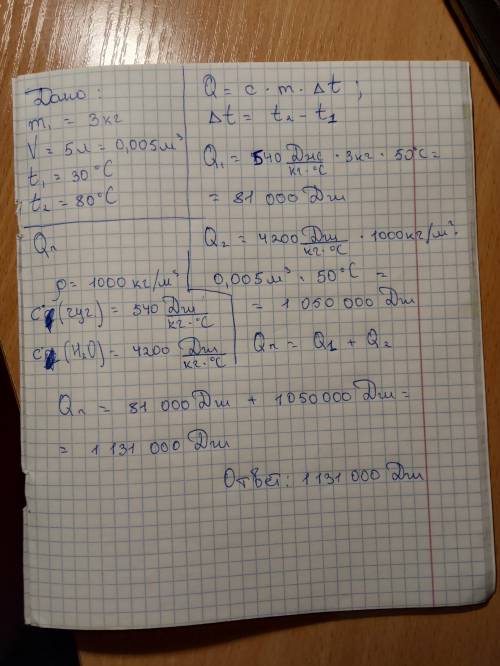 Дано:
m₁ = 3кг
V = 5л = 0,005м³
t₁ = 30°C
t₂ = 80°C
Qп
ρ = 1000 кг/м³
c (чуг) = 540 Дж/кг·°C
c (H₂O) = 4200 Дж/кг·°C
Q = c · m · Δt ;
Δt = t₂ - t₁
Q₁ = 540 Дж/кг·°C · 3кг · 50°C =
= 81 000 Дж
Q₂ = 4200 Дж/кг·°C · 1000кг/м³ ·
0,005м³ · 50°C =
= 1 050 000 Дж
Qп = Q₁ + Q₂
Qп = 81 000 Дж + 1050000 Дж =
= 1 131 000 Дж
Ответ: 1 131 000 Дж